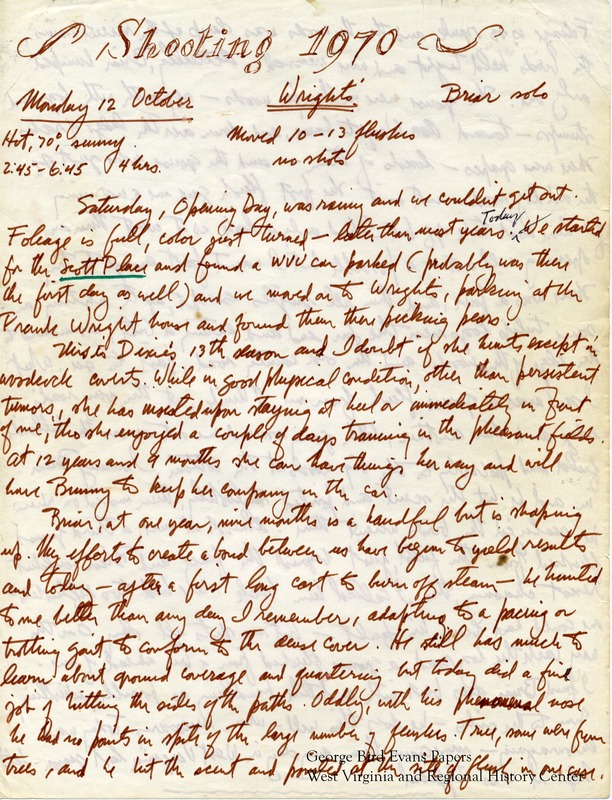 Shooting 1970
Monday 12 October Wrights' Briar solo
Hot, 70°, sunny. Moved 10-13 flushes
2:45-6:45 4 hrs. no shots
Saturday, Opening Day, was rainy and we couldn't get out.
Foliage is full, color just turned - later than most years. Today we started
for the Scott Place and found a WVU car parked (probably was there
the first day as well) and we moved on to Wrights, parking at the
Frank Wright house and found them there picking pears.
This is Dixie's 13th season and I doubt if she hunts except in
woodcock coverts. While in good physical condition, other than persistent
tumors, she has insisted upon staying at heel or immediately in front
of me, tho she enjoyed a couple of days training in the pheasant fields.
At 12 years and 9 months she can have things her way and will
have Bunny to keep her company in the car.
Briar, at one year, nine months is a handful but is shaping
up. My efforts to create a bond between us have begun to yield results
and today - after a first long cast to burn off steam - he hunted
to me better than any day I remember, adapting to a pacing or
trotting gait to conform to the dense cover. He still has much to
learn about ground coverage and quartering but today did a fine
job of hitting the sides of the paths. Oddly, with his phenomenal nose
he had no points in spite of the large number of flushes. True, some were from
trees, and he hit the scent and pointed at the site of flush in one case.
George Bird Evans Papers
West Virginia and Regional History Center